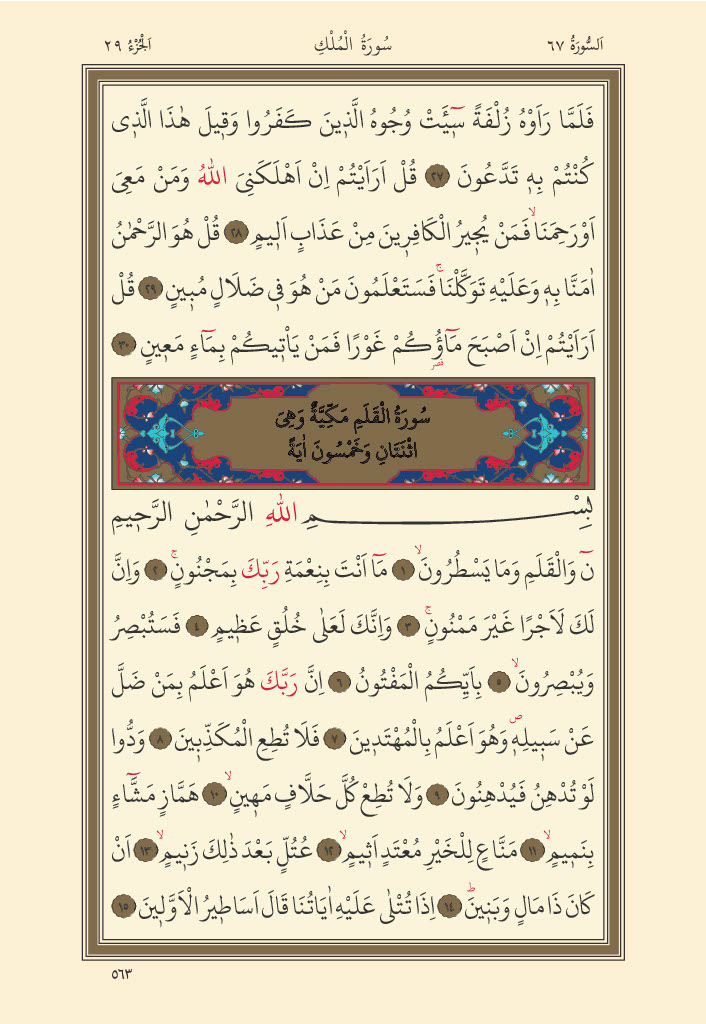 اَلسُّورَةُ ٦٧ سُورَةُ الْمُلْكِ اَلْجُزْءُ ٢٩
فَلَمَّا رَاَوْهُ زُلْفَةً سٖٓيـَٔتْ وُجُوهُ الَّذٖينَ كَفَرُوا وَقٖيلَ هٰذَا الَّذٖى
كُنْتُمْ بِهٖ تَدَّعُونَ ٢٧ قُلْ اَرَاَيْتُمْ اِنْ اَهْلَكَنِىَ اللّٰهُ وَمَنْ مَعِىَ
اَوْرَحِمَنَاۙ فَمَنْ يُجٖيرُ الْكَافِرٖينَ مِنْ عَذَابٍ اَلٖيمٍ ٢٨ قُلْ هُوَ الرَّحْمٰنُ
اٰمَنَّا بِهٖ وَعَلَيْهِ تَوَكَّلْنَاۚ فَسَتَعْلَمُونَ مَنْ هُوَ فٖى ضَلَالٍ مُبٖينٍ ٢٩ قُلْ
اَرَاَيْتُمْ اِنْ اَصْبَحَ مَٓاؤُ۬كُمْ غَوْرًا فَمَنْ يَاْتٖيكُمْ بِمَٓاءٍ مَعٖينٍ ٣٠
قصر
سُورَةُ الْقَلَمِ مَكِّيَّةٌ وَهِىَ
اثْنَتَانِ وَخَمْسُونَ اٰيَةً
بِسْــــــــمِ اللّٰهِ الرَّحْمٰنِ الرَّحٖيمِ
نٓ وَالْقَلَمِ وَمَا يَسْطُرُونَۙ ١ مَٓا اَنْتَ بِنِعْمَةِ رَبِّكَ بِمَجْنُونٍۚ ٢ وَاِنَّ
لَكَ لَاَجْرًا غَيْرَ مَمْنُونٍۚ ٣ وَاِنَّكَ لَعَلٰى خُلُقٍ عَظٖيمٍ ٤ فَسَتُبْصِرُ
وَيُبْصِرُونَۙ ٥ بِاَيِّكُمُ الْمَفْتُونُ ٦ اِنَّ رَبَّكَ هُوَ اَعْلَمُ بِمَنْ ضَلَّ
عَنْ سَبٖيلِهٖࣕ وَهُوَ اَعْلَمُ بِالْمُهْتَدٖينَ ٧ فَلَا تُطِعِ الْمُكَذِّبٖينَ ٨ وَدُّوا
لَوْ تُدْهِنُ فَيُدْهِنُونَ ٩ وَلَا تُطِعْ كُلَّ حَلَّافٍ مَهٖينٍۙ ١٠ هَمَّازٍ مَشَّٓاءٍ
بِنَمٖيمٍۙ ١١ مَنَّاعٍ لِلْخَيْرِ مُعْتَدٍ اَثٖيمٍۙ ١٢ عُتُلٍّ بَعْدَ ذٰلِكَ زَنٖيمٍۙ ١٣ اَنْ
كَانَ ذَا مَالٍ وَبَنٖينَؕ ١٤ اِذَا تُتْلٰى عَلَيْهِ اٰيَاتُنَا قَالَ اَسَاطٖيرُ الْاَوَّلٖينَ ١٥
٥٦٣